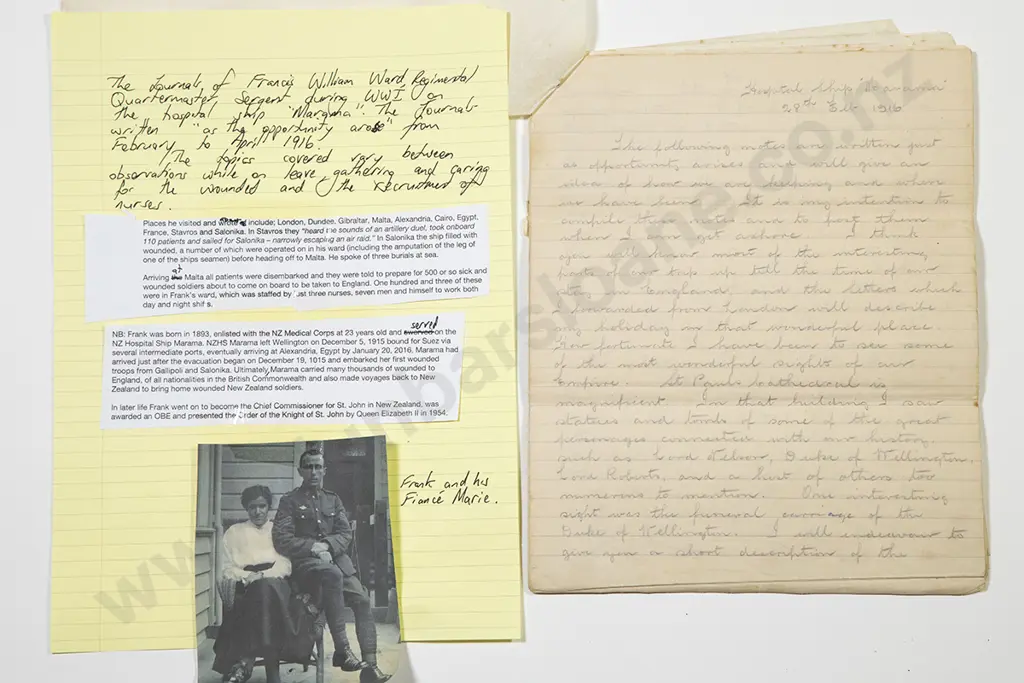 The Journals of Francis William Ward Regimental
Quartermaster Sergent during WWI on
the hospital ship "Marama". The Journals
written "as the opportunity arose" from
February to April 1916.
The topics covered vary between
observations while on leave, gathering and caring
for the wounded and the recruitment of
nurses.
Places he visited and include; London, Dundee, Gibraltar, Malta, Alexandria, Cairo, Egypt,
France, Stavros and Salonika. In Stavros they "heard the sounds of an artillery duel, took onboard
110 patients and sailed for Salonika – narrowly escaping an air raid." In Salonika the ship filled with
wounded, a number of which were operated on in his ward (including the amputation of the leg of
one of the ships seamen) before heading off to Malta. He spoke of three burials at sea.
Arriving at Malta all patients were disembarked and they were told to prepare for 500 or so sick and
wounded soldiers about to come on board to be taken to England. One hundred and three of these
were in Frank's ward, which was staffed by just three nurses, seven men and himself to work both
day and night shifts.
NB: Frank was born in 1893, enlisted with the NZ Medical Corps at 23 years old and served on the
NZ Hospital Ship Marama. NZHS Marama left Wellington on December 5, 1915 bound for Suez via
several intermediate ports, eventually arriving at Alexandria, Egypt by January 20, 2016. Marama had
arrived just after the evacuation began on December 19, 1015 and embarked her first wounded
troops from Gallipoli and Salonika. Ultimately Marama carried many thousands of wounded to
England, of all nationalities in the British Commonwealth and also made voyages back to New
Zealand to bring home wounded New Zealand soldiers.
In later life Frank went on to become the Chief Commissioner for St. John in New Zealand, was
awarded an OBE and presented the Order of the Knight of St. John by Queen Elizabeth II in 1954.
Frank and his
Fiancé Marie.
Hospital Ship "Marama"
28th Feb 1916
The following notes are written just
as opportunity arises and will give an
idea of how we are keeping and where
we have been. It is my intention to
compile these notes and to post them
when I can get ashore. I think
you will know most of the interesting
parts of our trip up till the time of our
stay in England, and the letters which
I forwarded from London will describe
my holiday in that wonderful place.
How fortunate I have been to see some
of the most wonderful sights of our
Empire. St Pauls Cathedral is
magnificent. In that building I saw
statues and tombs of some of the great
personages connected with our history,
such as Lord Nelson, Duke of Wellington,
Lord Roberts, and a host of others too
numerous to mention. One interesting
sight was the funeral carriage of the
Duke of Wellington. I will endeavour to
give you a short description of the